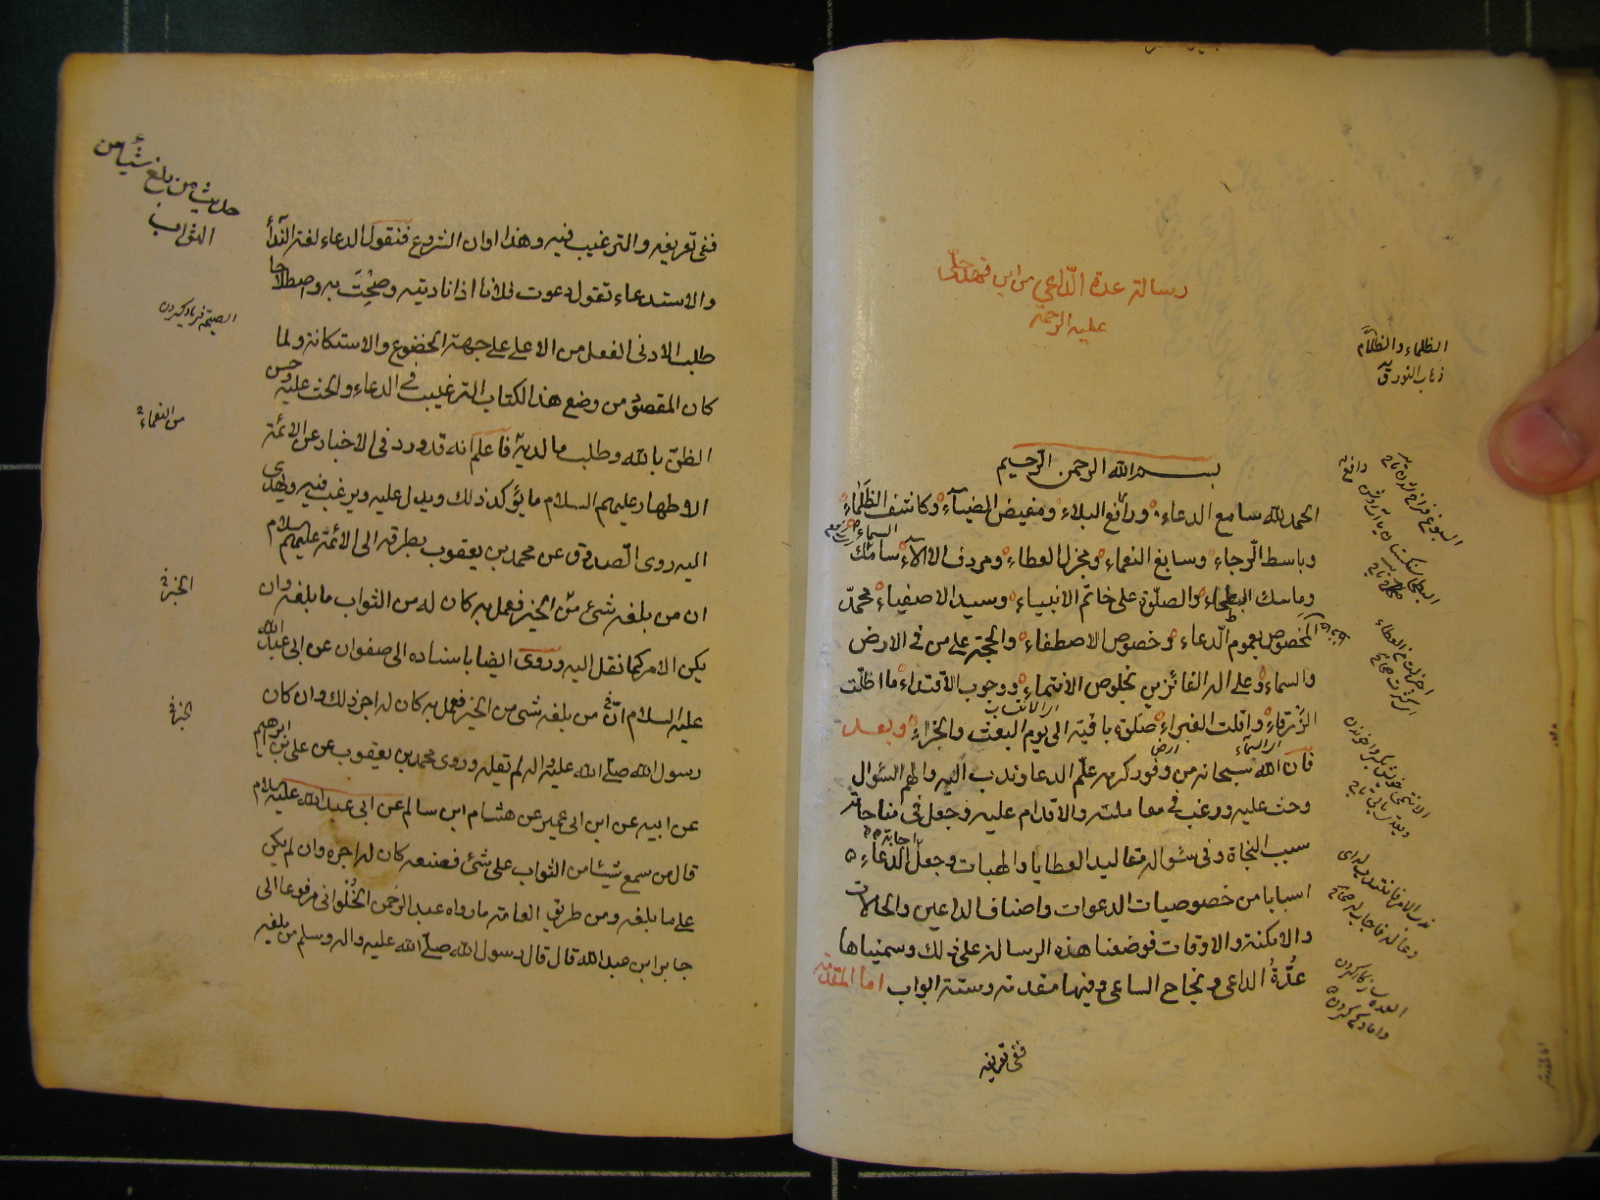 رسالة عدة الداعي من ابن فهد حلى
عليه الرحمة
بسم الله الرحمن الرحيم
الحمد لله سامع الدعاء ودافع البلاء ومفيض الضياء وكاشف الظلماء
وباسط الرجاء وسابغ النعماء ومجزل العطاء ومردف الالاء سامك
السماء
وماسك البطحاء والصلوة على خاتم الانبياء وسيد الاصفياء محمد
المخصوص بعموم الدعاء وخصوص الاصطفاء والحجة على من فى الارض
والسماء وعلى اله الفائزين بخلوص الانتماء ووجوب الاقتداء ما اظلت
الزرقاء واقلت الغبراء صلوة باقية الى يوم البعث والجزاء وبعد
اى السماء ارض
فان الله سبحانه من وفور كرمه علم الدعا وندب اليه والهم السؤال
وحث عليه ورغب فى معاملته والاقدام عليه وجعل فى مناجاته
سبب النجاة وفى سؤاله مقاليد العطايا والهبات وجعل الدعاء
اجابة
اسبابا من خصوصيات الدعوات واصناف الداعين والحالات
والامكنة والاوقات فوضعنا هذه الرسالة على ذلك وسميناها
عدة الداعى ونجاح الساعى وفيها مقدمة وستة ابواب اما المقدمة
ففى تعريفه
الظلماء والظلام
ذهاب النور ق
ففى تعريفه والترغيب فيه وهذا اوان الشروع فنقول الدعاء لغة النداء
والاستدعاء تقول دعوت فلانا اذا ناديته وصحت به واصطلاحا
طلب الادنى الفعل من الاعلى على جهة الخضوع والاستكانة ولما
كان المقصود من وضع هذا الكتاب الترغيب فى الدعاء والحث عليه وحسن
الظن بالله وطلب ما لديه فاعلم انه قد ورد فى الاخبار عن الائمة
الاطهار عليهم السلام ما يؤكد ذلك ويدل عليه ويرغب فيه ويهدى
اليه روى الصدوق عن محمد بن يعقوب بطرقه الى الائمة عليهم السلام
ان من بلغه شئ من الخير فعمل به كان له من الثواب ما بلغه وان
لم يكن الامر كما نقل اليه وروى ايضا باسناده الى صفوان عن ابى عبد الله
عليه السلام انه من بلغه شئ من الخير فعمل به كان له اجر ذلك وان كان
رسول الله صلى الله عليه واله لم يقله وروى محمد بن يعقوب عن على بن ابرهيم
عن ابيه عن ابن ابى عمير عن هشام ابن سالم عن ابى عبد الله عليه السلام
قال من سمع شيئا من الثواب على شئ فصنعه كان له اجره وان لم يكن
على ما بلغه ومن طريق العامة ما رواه عبد الرحمن الحلوانى مرفوعا الى
جابر ابن عبد الله قال قال رسول الله صلى الله عليه واله وسلم من بلغه
حديث من بلغ شيئا من
الثواب
الصيحة فرياد كردن
من النعماء
الخير
الخير